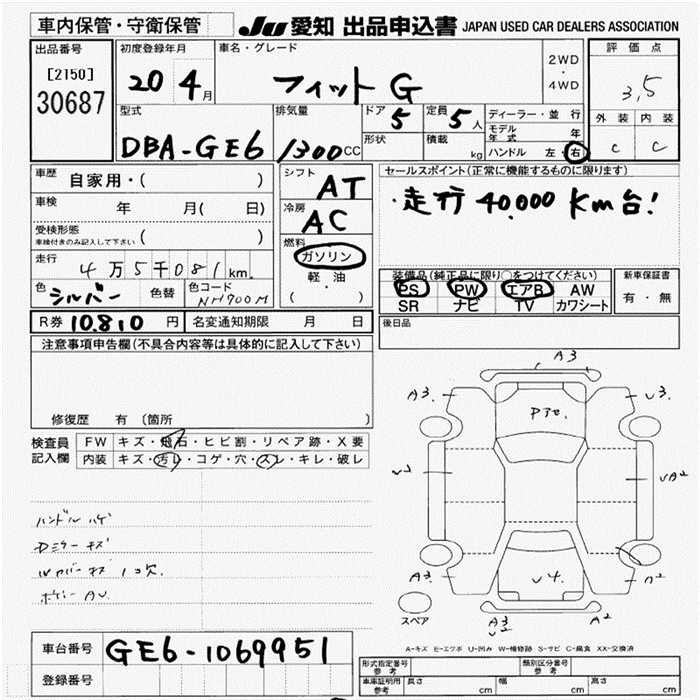 車内保管・守衛保管 JU 愛知 出品申込書 JAPAN USED CAR DEALERS ASSOCIATION
出品番号 初度登録年月 車名・グレード 評価点
[2150] 20 4月 フィット G 2WD・4WD 3,5
30687
型式 排気量 ドア 5 定員 5人 ディーラー・並行 外装 内装
モデル年式 年
DBA-GE6 1300CC 形状 積載 kg ハンドル 左・右 C C
車歴 自家用・( ) シフト AT セールスポイント(正常に機能するものに限ります)
車検 年 月( 日) 冷房 AC ・走行 40,000 Km台!
受検形態 ( )
車検付きのみ記入して下さい
燃料 ガソリン
走行 4万5千081km. 軽・油 装備品(純正品に限り○をつけてください) 新車保証書
色 シルバー 色替 色コード NH700M ( ) PS PW エアB AW 有・無
SR ナビ TV カワシート
R券 10.810 円 名変通知期限 月 日 後日品
注意事項申告欄(不具合内容等は具体的に記入して下さい)
修復歴 有 〔箇所 〕
検査員 FW キズ・飛石・ヒビ割・リペア跡・X要
記入欄 内装 キズ・汚レ・コゲ・穴・スレ・キレ・破レ
ハンドル ハゲ
Dミラー キズ
1コ欠.
A3
A3. U3.
UA2
A3. U4. A2
スペア A3 A2
A-キズ E-エクボ U-凹み W-補修跡 S-サビ C-腐食 XX-交換済
車台番号 GE6-1069951
登録番号
形式指定番号 参考 類別区分番号 参考
車庫証明用 参考 長さ cm 幅 cm 高さ cm